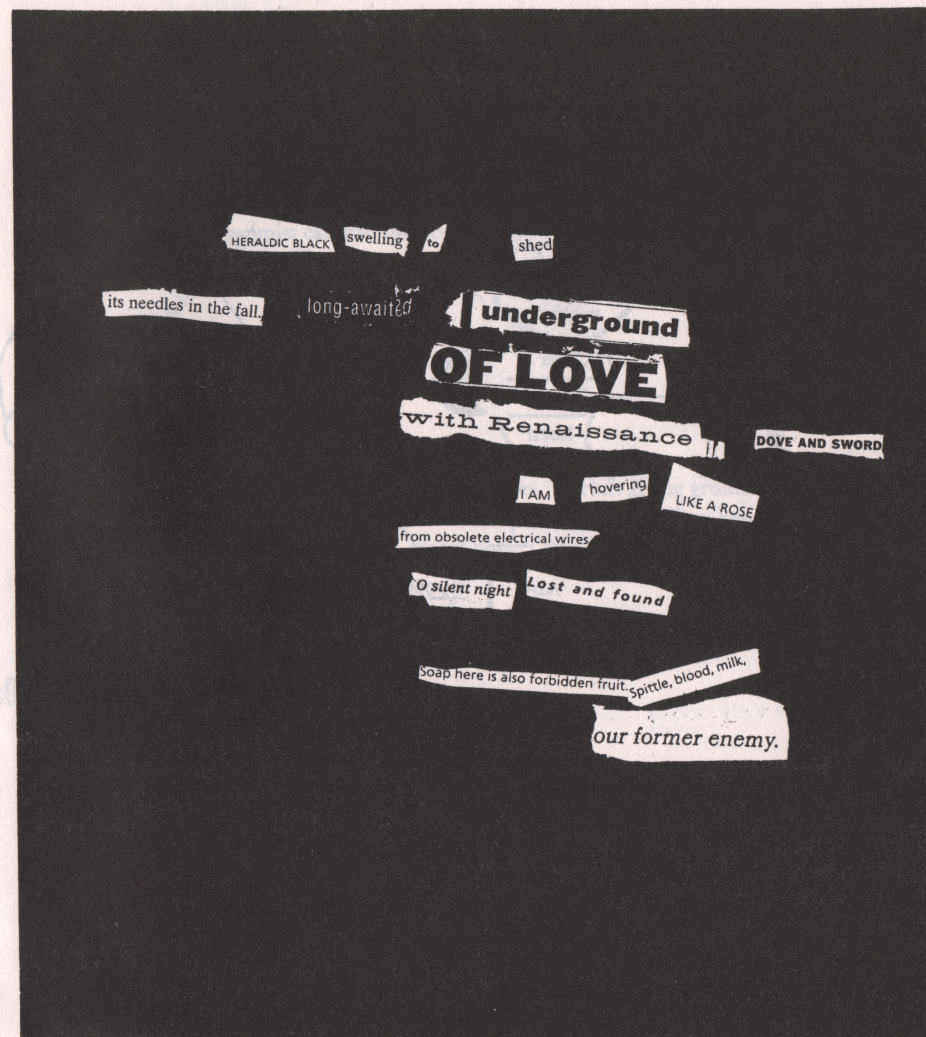 HERALDIC BLACK swelling to shed
its needles in the fall. long-awaited underground
OF LOVE
with Renaissance DOVE AND SWORD
I AM hovering LIKE A ROSE
from obsolete electrical wires
O silent night Lost and found
Soap here is also forbidden fruit. Spittle, blood, milk,
our former enemy.